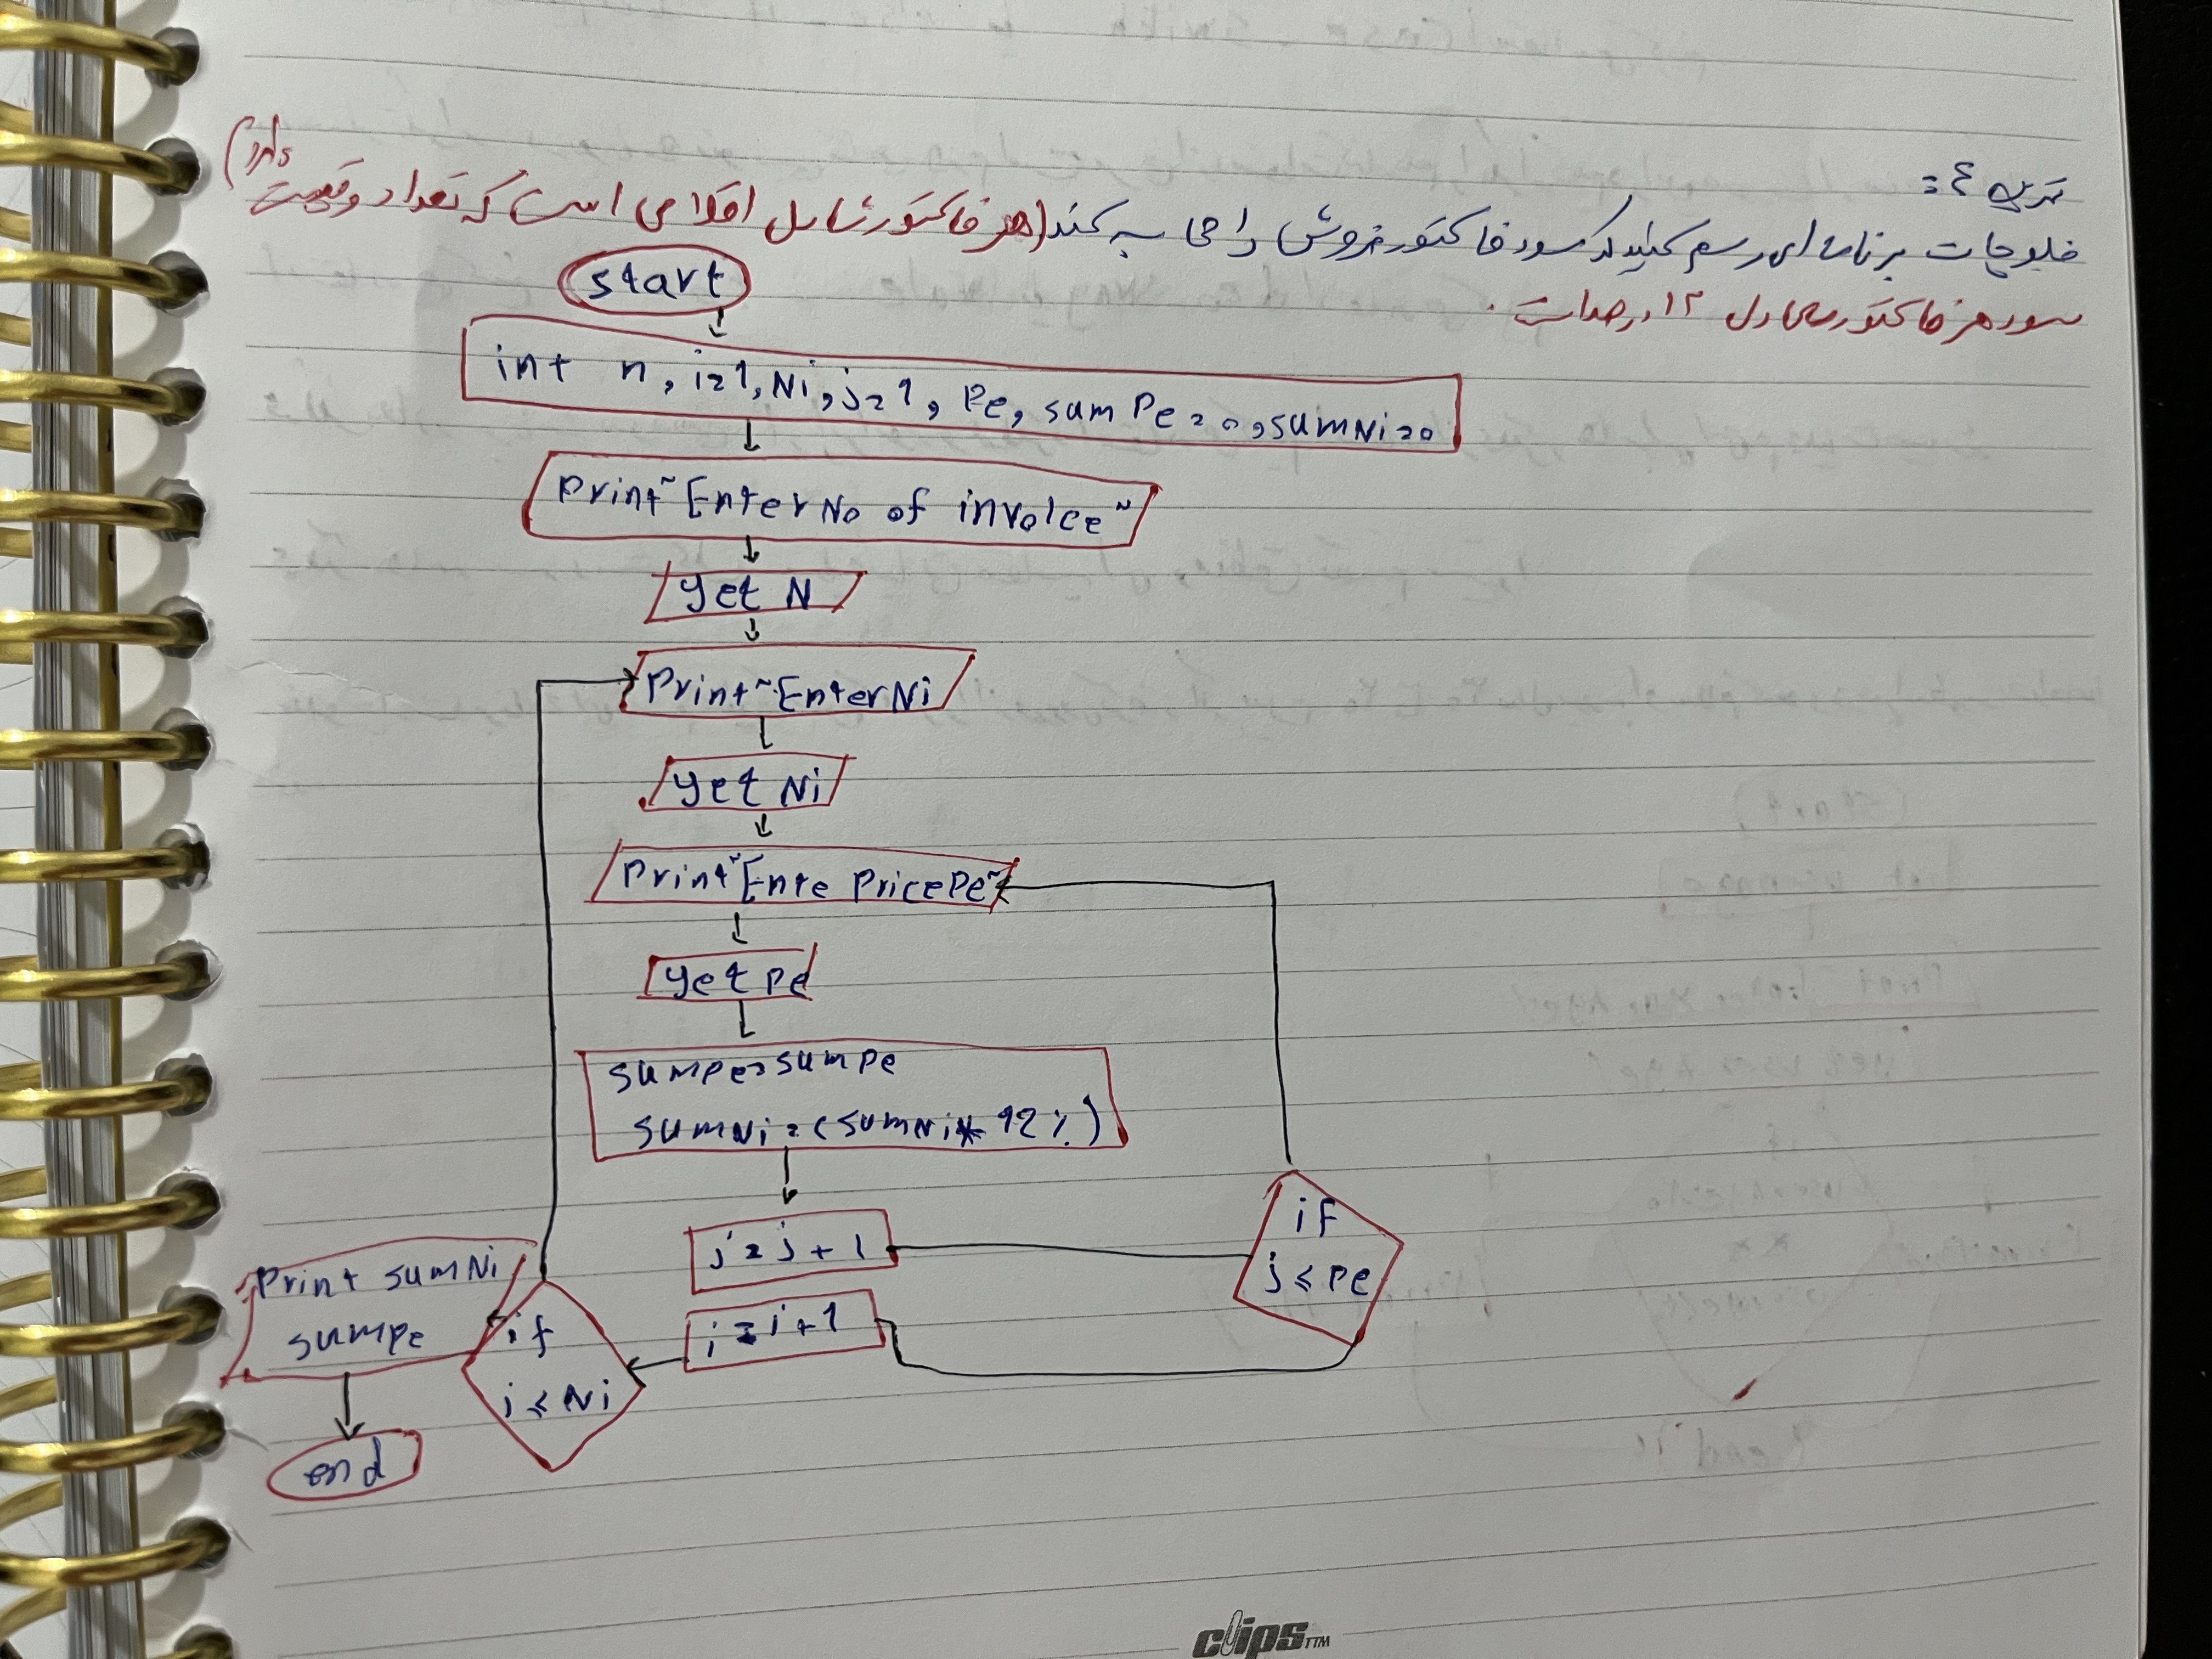 تمرین ۴ :
فلوچارت برنامه ای رسم کنید که سود فاکتور فروش را محاسبه کند (هر فاکتور شامل اقلامی است که تعداد و قیمت دارند)
سود هر فاکتور معادل ۱۲ درصد است.
Start
int n, i=1, Ni, j=1, Pe, sum Pe = 0, sumNi=0
Print "Enter No of invoice"
get N
Print "Enter Ni
get Ni
Print "Ente Price Pe"
get Pe
sumpe=sumpe
sumNi = (sumNi * 12%)
j = j + 1
if
j ≤ Pe
i = i + 1
if
i ≤ Ni
Print sumNi
sumpe
end
clips™